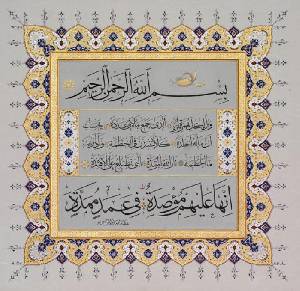 بِسْمِ اللَّهِ الرَّحْمَٰنِ الرَّحِيمِ
ويل لكل همزة لمزة الذي جمع مالا وعدده يحسب
أن ماله أخلده كلا لينبذن في الحطمة وما أدراك
ما الحطمة نار الله الموقدة التي تطلع على الأفئدة
إنها عليهم مؤصدة في عمد ممددة